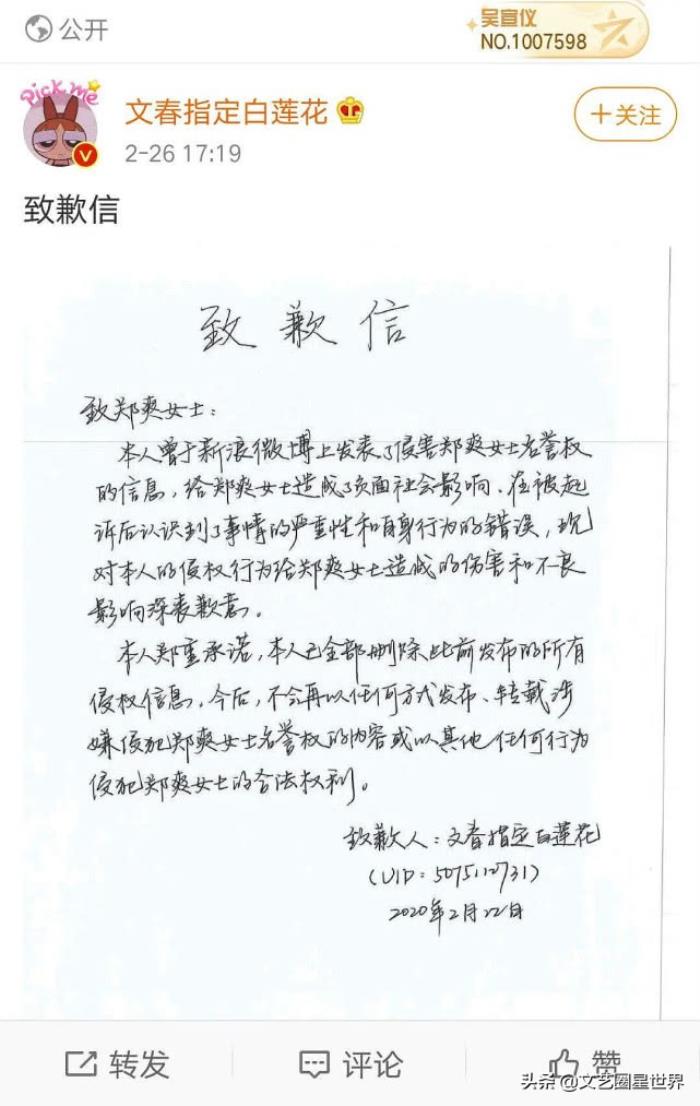 公开
吴宣仪
NO.1007598
Pick me
文春指定白莲花
+关注
2-26 17:19
致歉信
致歉信
致郑爽女士：
本人曾于新浪微博上发表了侵害郑爽女士名誉权
的信息，给郑爽女士造成了负面社会影响。在被起
诉后认识到了事情的严重性和自身行为的错误，现
对本人的侵权行为给郑爽女士造成的伤害和不良
影响深表歉意。
本人郑重承诺，本人已全部删除此前发布的所有
侵权信息，今后，不会再以任何方式发布、转载涉
嫌侵犯郑爽女士名誉权的内容或以其他任何行为
侵犯郑爽女士的合法权利。
致歉人：文春指定白莲花
(UID：5075112731)
2020年2月22日
转发
评论
赞
头条 @文艺圈星世界